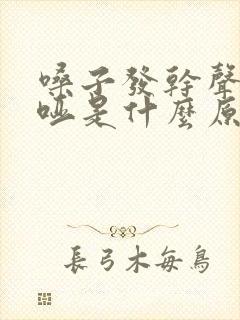 嗓子發幹聲
啞是什麼原
長弓木每鳥